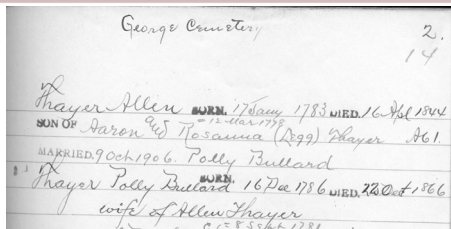 George Cemetery
2.
14
Thayer Allen BORN. 17 Jany 1783 DIED. 16 Apl 1844
= 12 Mar 1778
SON OF Aaron and Rosanna (Legg) Thayer A61.
MARRIED. 9 Oct 1906. Polly Bullard
Thayer Polly Bullard BORN. 16 Dec 1786 DIED. 22 Oct 1866
wife of Allen Thayer
= 8 Sept 1781